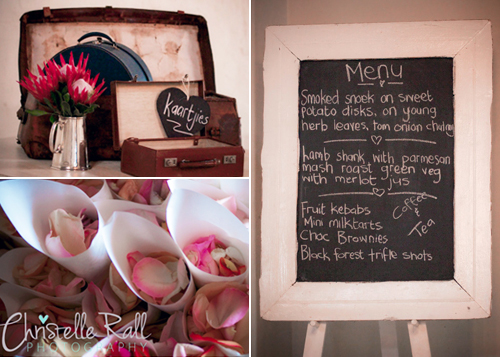 Christelle Rall
PHOTOGRAPHY
kaartjies
Menu
Smoked snoek on sweet
potato disks, on young
herb leaves, tom onion chutney
Lamb shank with parmesan
mash roast green veg
with merlot jus
Coffee
&
Tea
Fruit kebabs
Mini milktarts
Choc Brownies
Black forest trifle shots
Christelle Rall
PHOTOGRAPHY